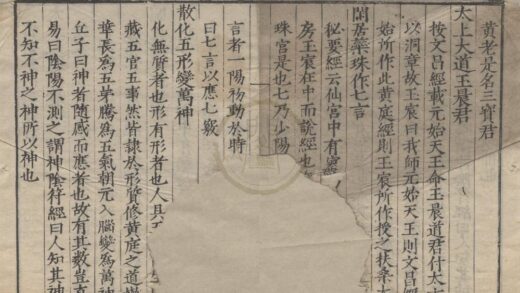 黄老是名三寳君
太上大道玉晨君
按文昌經載元始天王命玉晨道君付太
以洞章故王宸曰我師元始天王則文昌經
始所作此黄庭經則王宸所作授之扶桒大
閒居蘂珠作七言
秘要經云仙宮中有寥
房王宸在中而說經也
珠宮是也七乃少陽
言者一陽初動於時
曰七言以應七竅
散化五形變萬神
化無質者也形有形者也人具
藏五官五事然皆隷於形質修黄庭之道
華長爲五弟騰爲五氣朝元入腦變爲萬神
丘子曰神者随感而應者也故有其數豈
易曰陰陽不測之謂神陰符經曰人知其神
不知不神之神所以神也